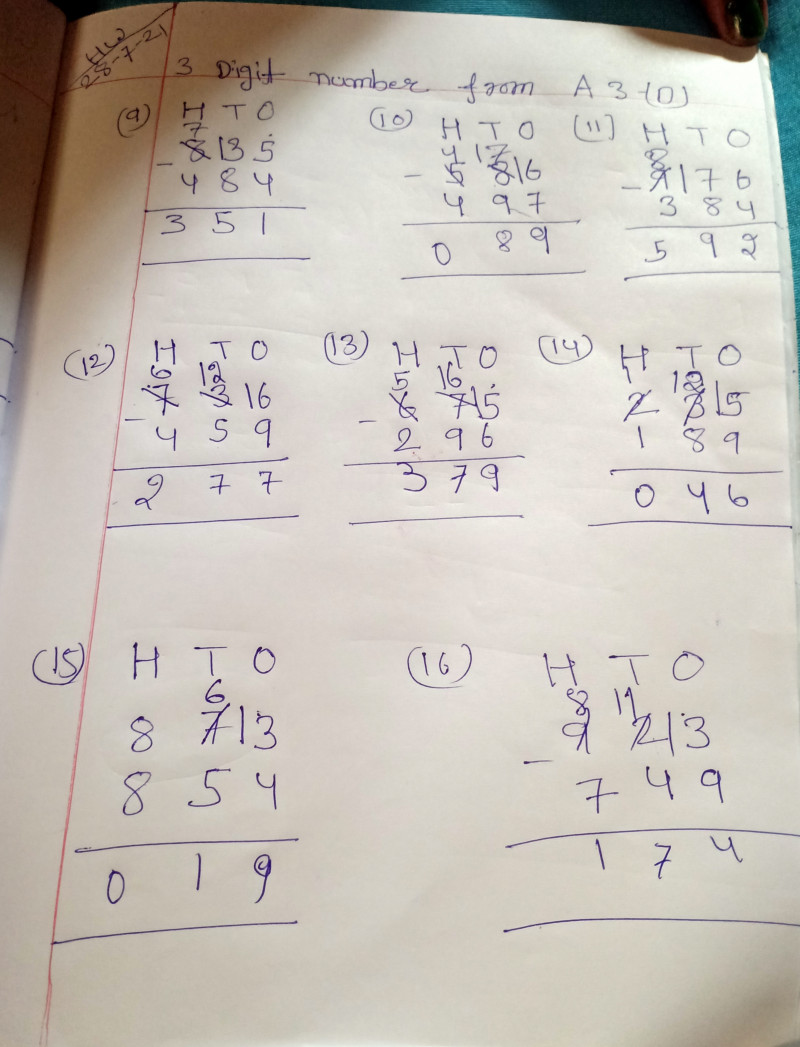 HW
28-7-21
3 Digit number from A3 (D)
(9) H T O
7
8 13 5
- 4 8 4
3 5 1
(10) H T O
4 17
5 8 16
- 4 9 7
0 8 9
(11) H T O
8
9 17 6
- 3 8 4
5 9 2
(12) H T O
6 12
7 3 16
- 4 5 9
2 7 7
(13) H T O
5 16
6 7 15
- 2 9 6
3 7 9
(14) H T O
1 12
2 3 15
1 8 9
0 4 6
(15) H T O
6
8 7 13
8 5 4
0 1 9
(16) H T O
8 11
9 2 13
- 7 4 9
1 7 4